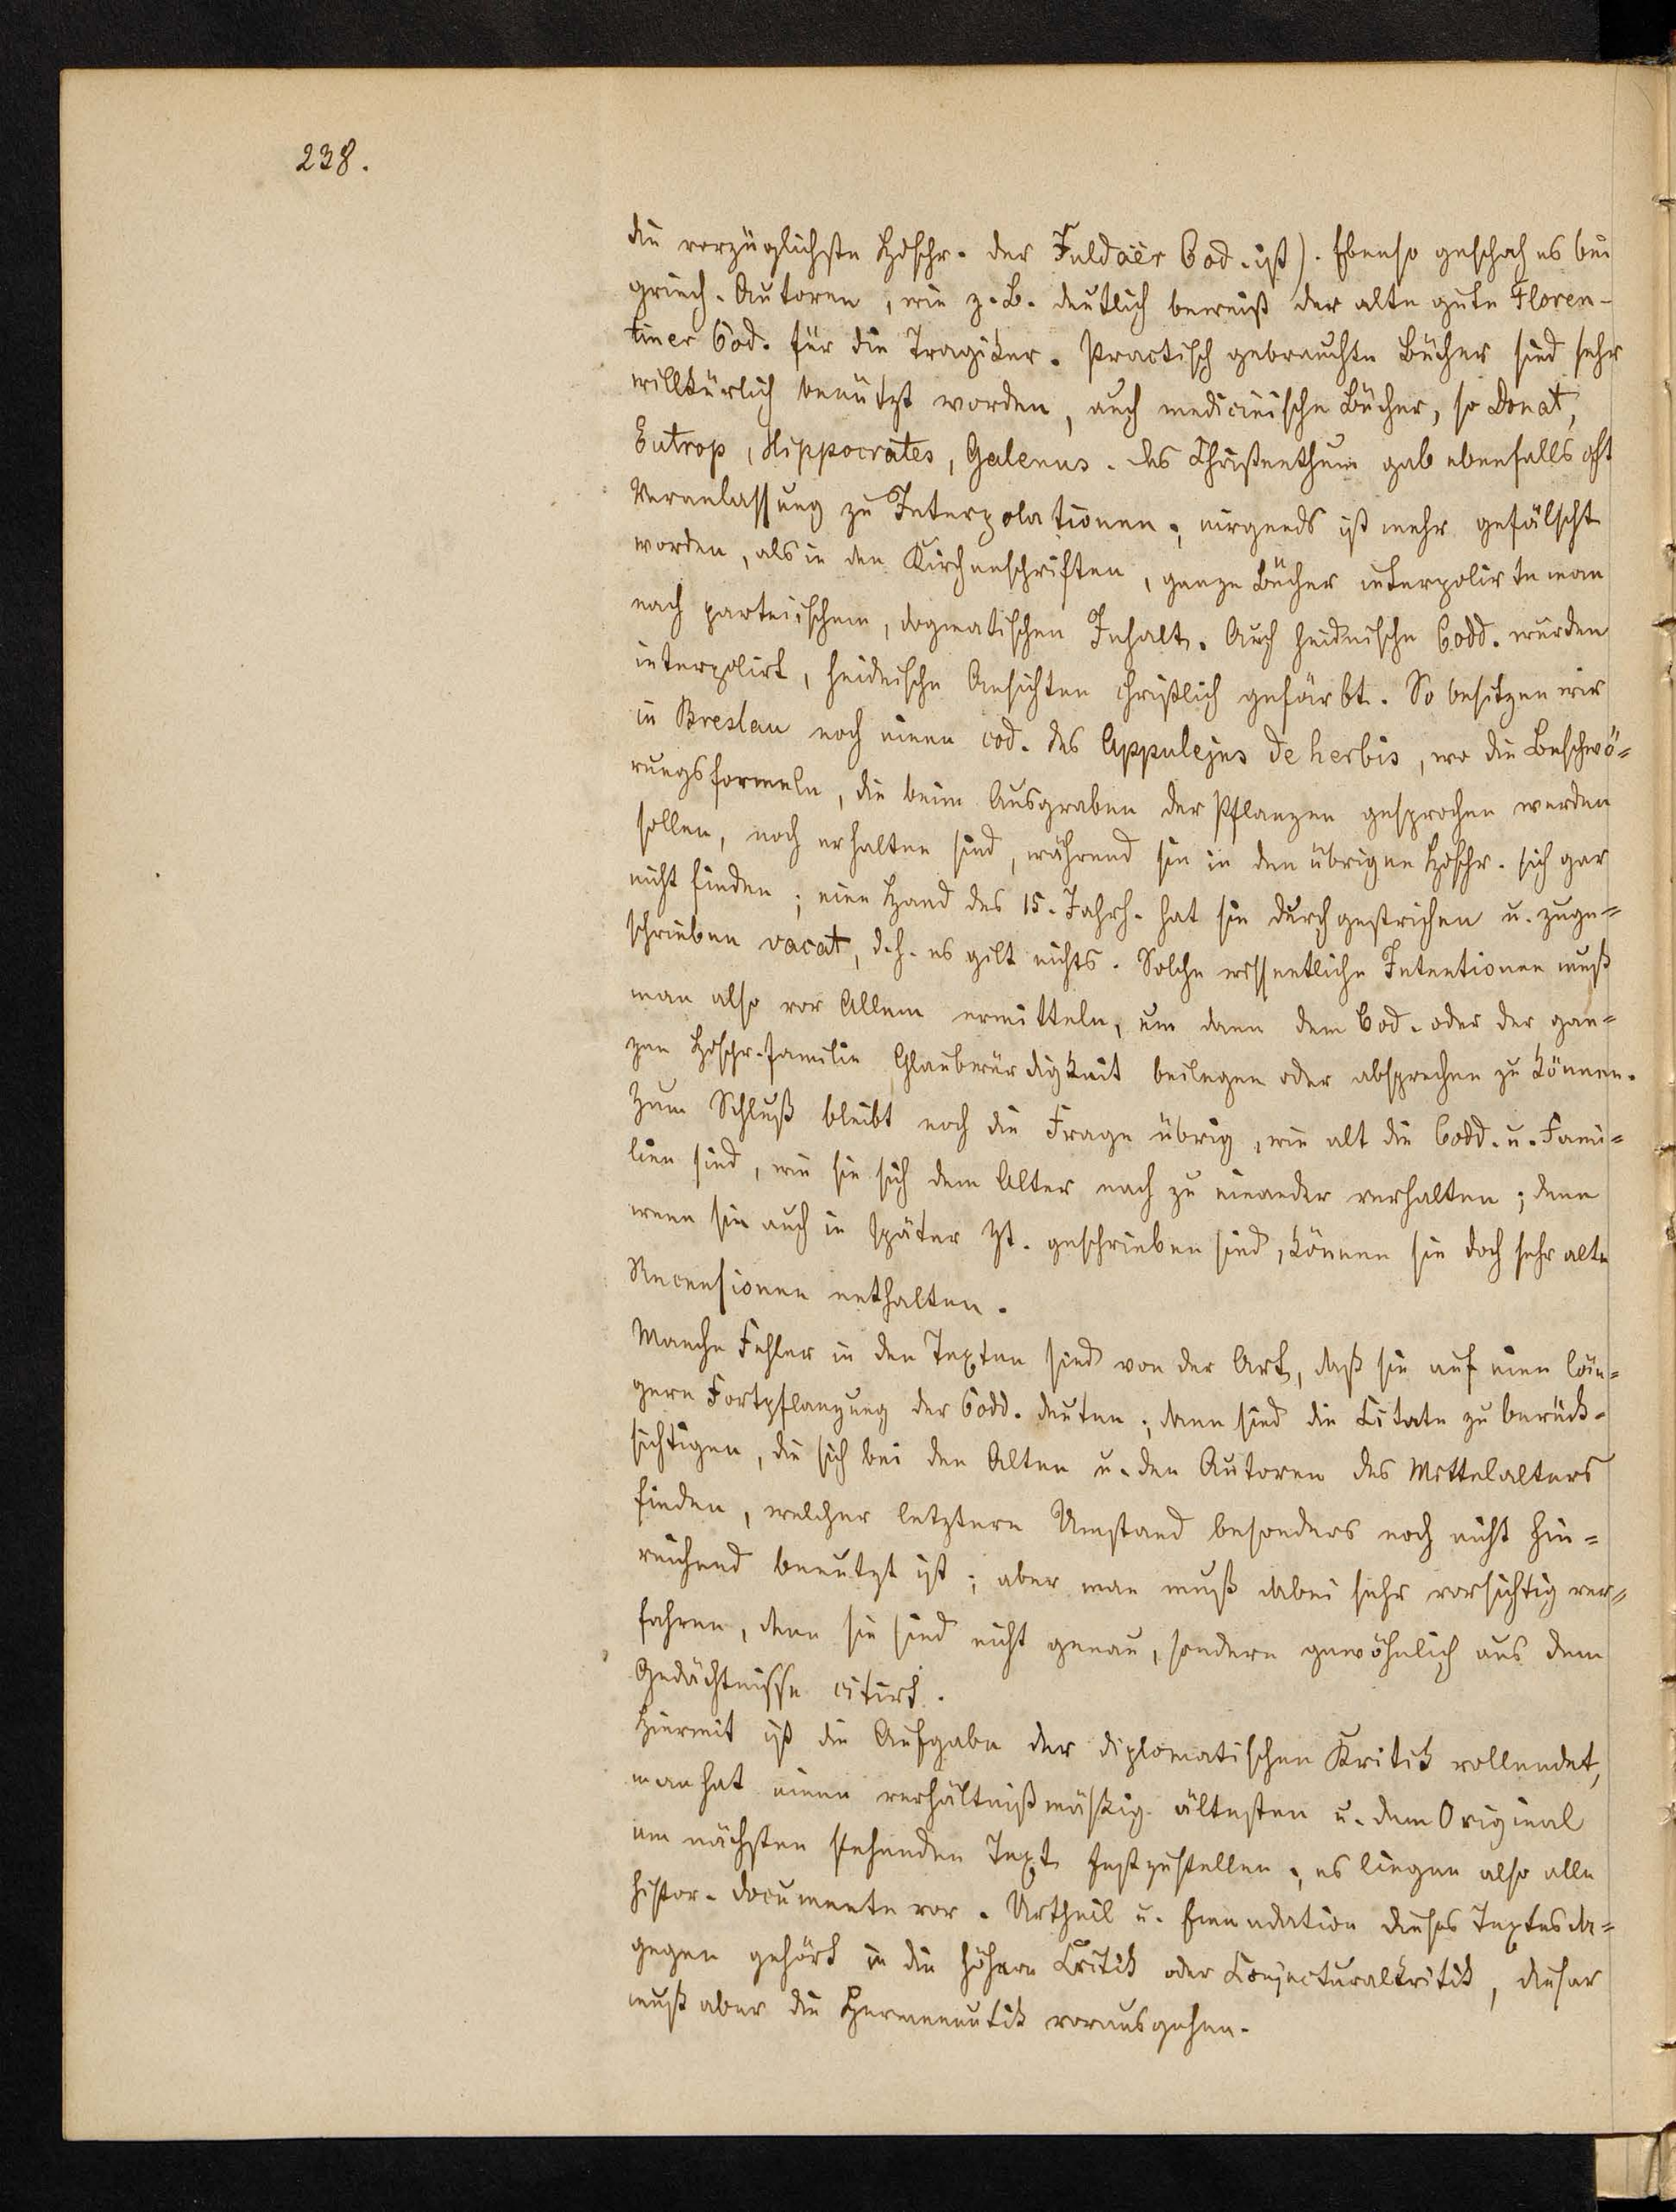 238.
die vorzüglichste Hdschr. der Fuldaër Cod. ist). Ebenso geschah es bei
griech. Autoren, wie z. B. deutlich beweist der alte gute Floren-
tiner Cod. für die Tragiker. Practisch gebrauchte Bücher sind sehr
willkürlich benützt worden, auch medicinische Bücher, so Donat,
Eutrop, Hippocrates, Galenus. Das Christenthum gab ebenfalls oft
Veranlassung zu Interpolationen; nirgends ist mehr gefälscht
worden, als in den Kirchenschriften, ganze Bücher interpolirte man
nach parteiischem, dogmatischen Inhalt. Auch heidnische Codd. wurden
interpolirt, heidnische Ansichten christlich gefärbt. So besitzen wir
in Breslau noch einen cod. des Appulejus de herbis, wo die Beschwö=
rungsformeln, die beim Ausgraben der Pflanzen gesprochen werden
sollen, noch erhalten sind, während sie in den übrigen Hdschr. sich gar
nicht finden; eine Hand des 15. Jahrh. hat sie durchgestrichen u. zuge=
schrieben vacat, d. h. es gilt nichts. Solche wissentliche Intentionen muß
man also vor Allem ermitteln, um dann dem Cod. oder der gan=
zen Hdschr.familie Glaubwürdigkeit beilegen oder absprechen zu können.
Zum Schluß bleibt noch die Frage übrig, wie alt die Codd. u. Fami=
lien sind, wie sie sich dem Alter nach zu einander verhalten; denn
wenn sie auch in später Zt. geschrieben sind, können sie doch sehr alte
Recensionen enthalten.
Manche Fehler in den Texten sind von der Art, daß sie auf eine län=
gere Fortpflanzung der Codd. deuten; dann sind die Citate zu berück=
sichtigen, die sich bei den Alten u. den Autoren des Mittelalters
finden, welcher letztere Umstand besonders noch nicht hin=
reichend benutzt ist; aber man muß dabei sehr vorsichtig ver=
fahren, denn sie sind nicht genau, sondern gewöhnlich aus dem
Gedächtnisse citirt.
Hiermit ist die Aufgabe der diplomatischen Kritik vollendet,
man hat einen verhältnißmäßig ältesten u. dem Original
am nächsten stehenden Text festzustellen; es liegen also alle
histor. Documente vor. Urtheil u. Emendation dieses Textes da=
gegen gehört in die höhere Critik oder Conjecturalkritik, dieser
muß aber die Hermeneutik vorausgehen.